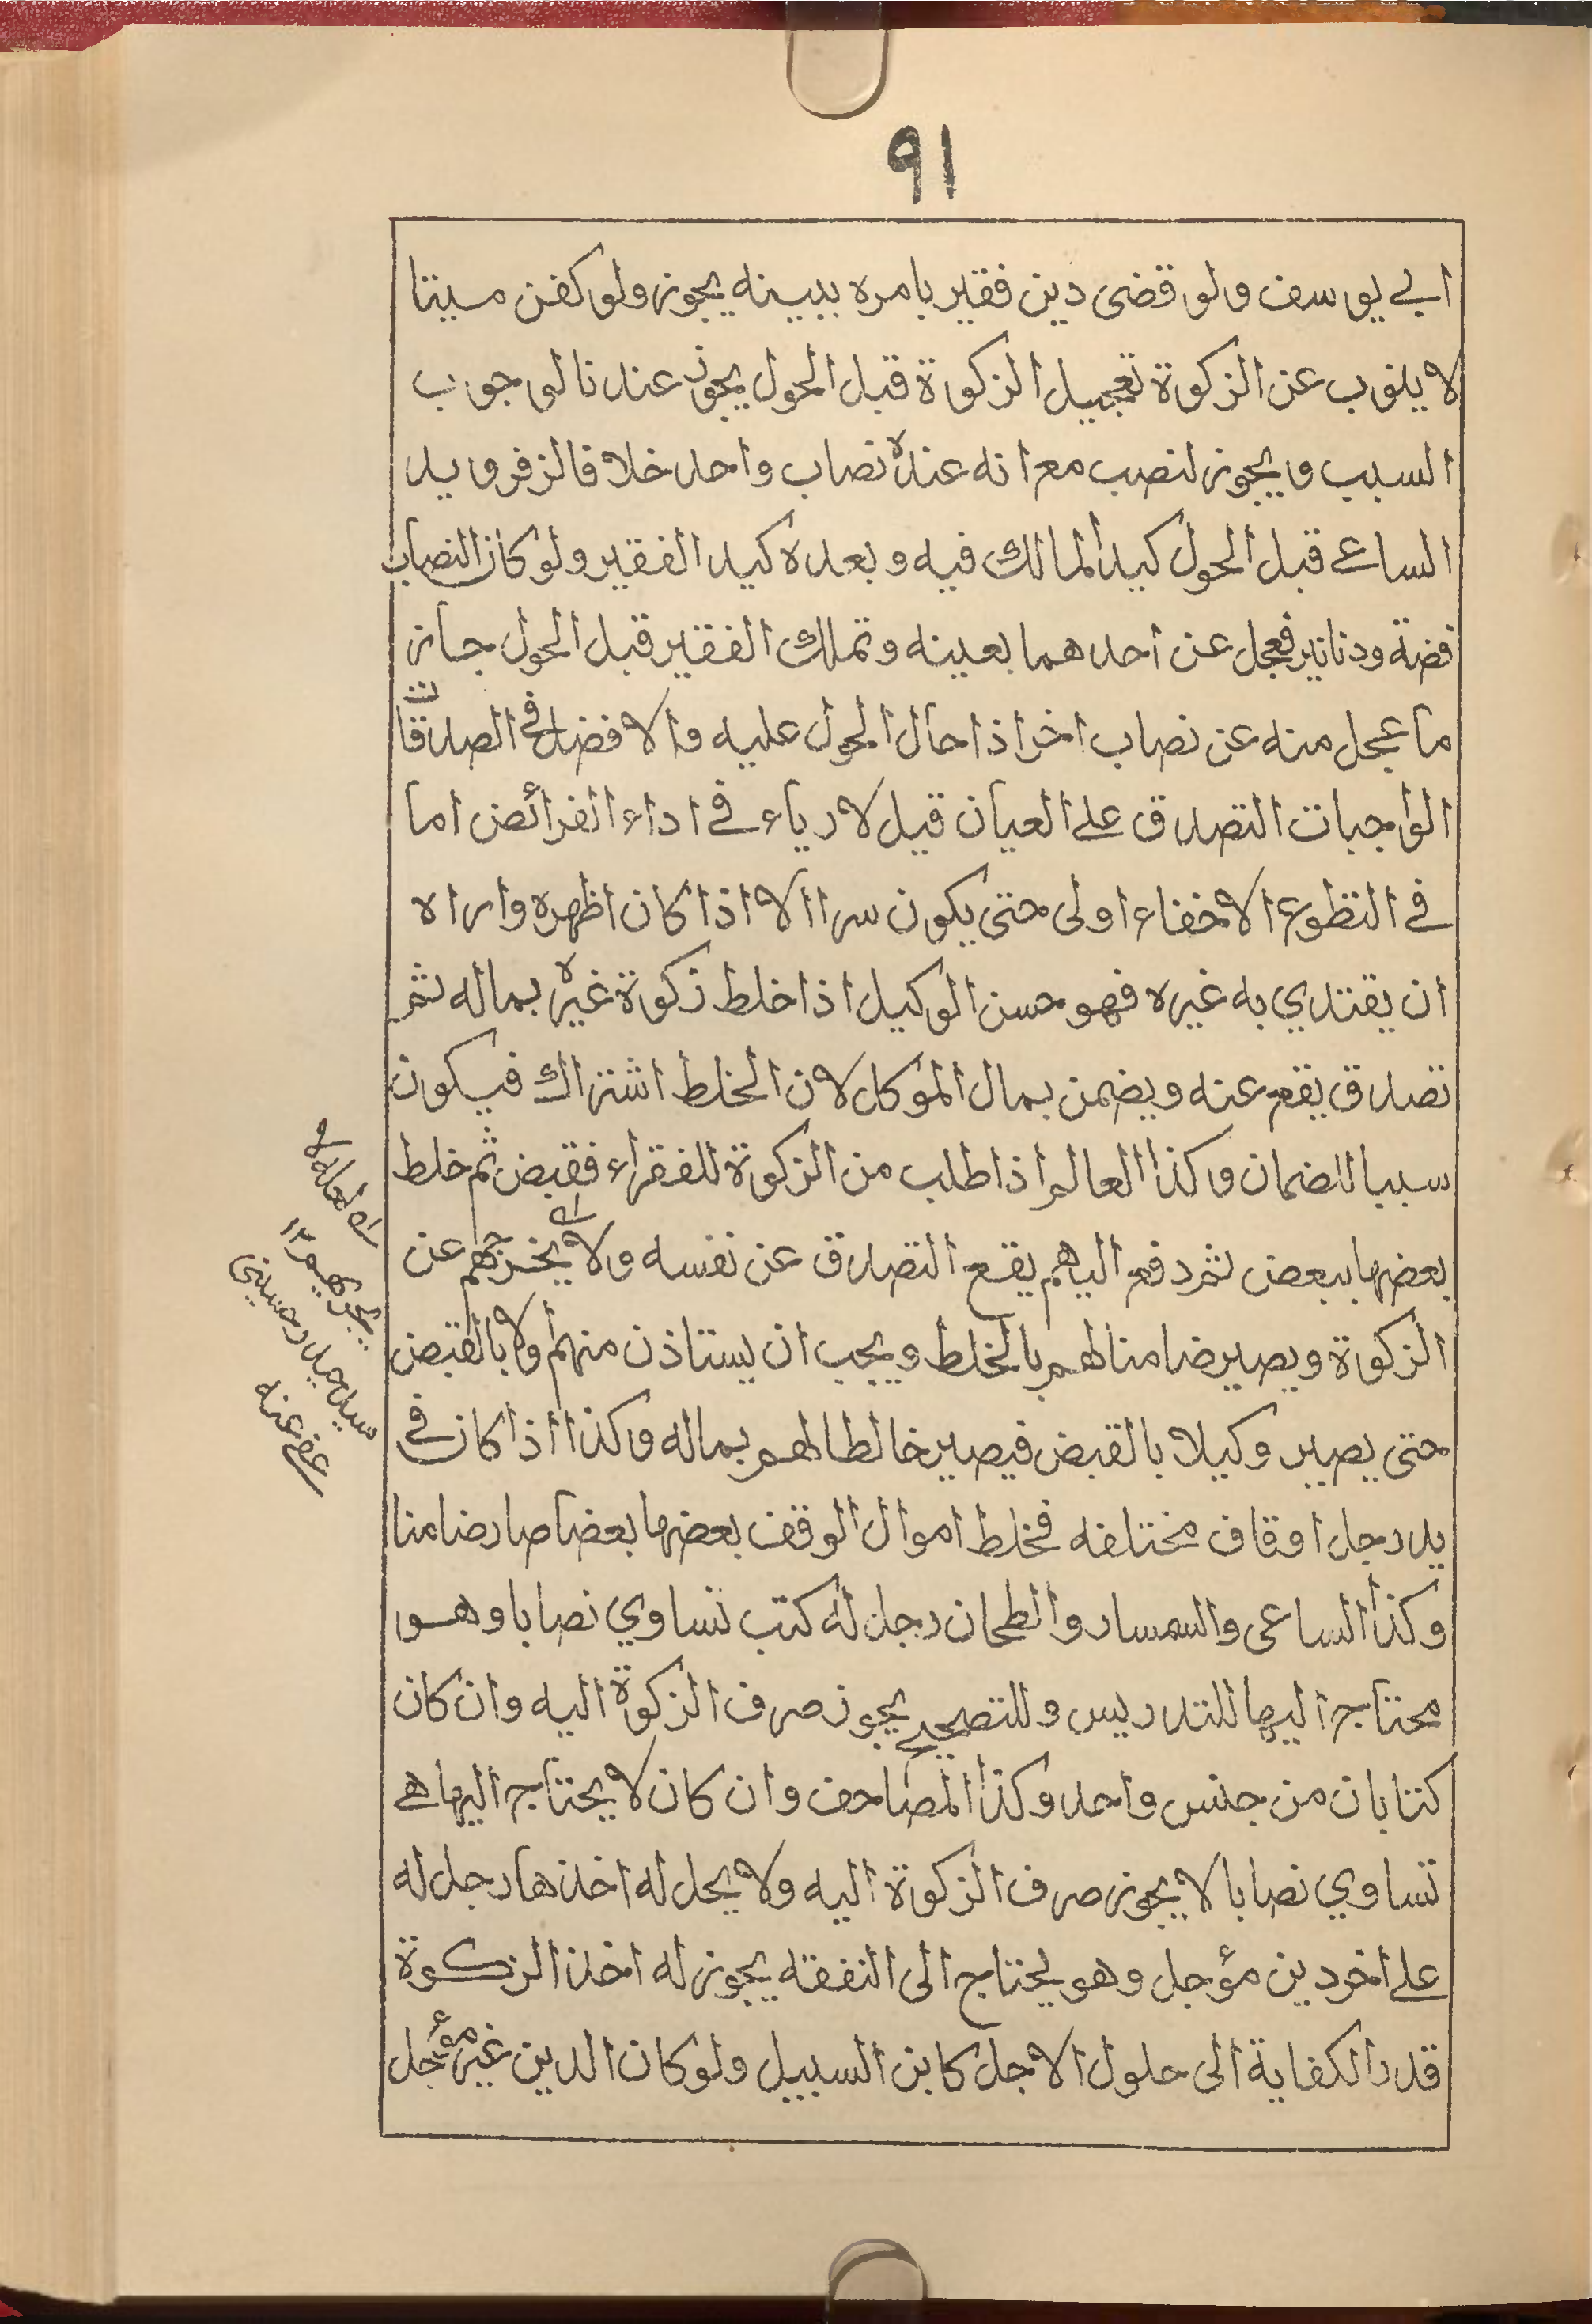 ٩١
ابي يوسف ولو قضى دين فقير بامره ببينه يجوز ولو كفن ميتا
لا ينوب عن الزكوة تعجيل الزكوة قبل الحول يجوز عندنا لوجوب
السبب ويجوز لنصب مع انه عنده نصاب واحد خلافا لزفر ويد
الساعي قبل الحول كيد المالك فيه وبعده كيد الفقير ولو كان النصاب
فضة ودنانير فعجل عن احدهما بعينه وتملك الفقير قبل الحول جاز
ما عجل منه عن نصاب اخر اذا حال الحول عليه والافضل في الصدقات
الواجبات التصدق على العيان قيل لا رياء في اداء الفرائض اما
في التطوع الاخفاء اولى حتى يكون سرا الا اذا كان اظهره واراه
ان يقتدي به غيره فهو حسن الوكيل اذا خلط زكوة غيره بماله ثم
تصدق يقع عنه ويضمن بمال الموكل لان الخلط اشتراك فيكون
سببا للضمان وكذا العالم اذا طلب من الزكوة للفقراء فقبض ثم خلط
بعضها ببعض ثم دفع اليهم يقع التصدق عن نفسه ولا يخرجهم عن
الزكوة ويصير ضامنا لهم بالخلط ويجب ان يستاذن منهم ولا بالقبض
حتى يصير وكيلا بالقبض فيصير خالطا لهم بماله وكذا اذا كان في
يد رجل اوقاف مختلفه فخلط اموال الوقف بعضها بعضا صار ضامنا
وكذا الساعى والسمسار والطحان رجل له كتب تساوي نصابا وهو
محتاج اليها للتدريس وللتصحيح يجوز صرف الزكوة اليه وان كان
كتابان من جنس واحد وكذا المصاحف وان كان لا يحتاج اليها هي
تساوي نصابا لا يجوز صرف الزكوة اليه ولا يحل له اخذها رجل له
على اخر دين مؤجل وهو يحتاج الى النفقه يجوز له اخذ الزكوة
قدر الكفاية الى حلول الاجل كابن السبيل ولو كان الدين غير مؤجل
لعله لا
يجزيهم ١٢
سيد حيدر حسيني
عفي عنه